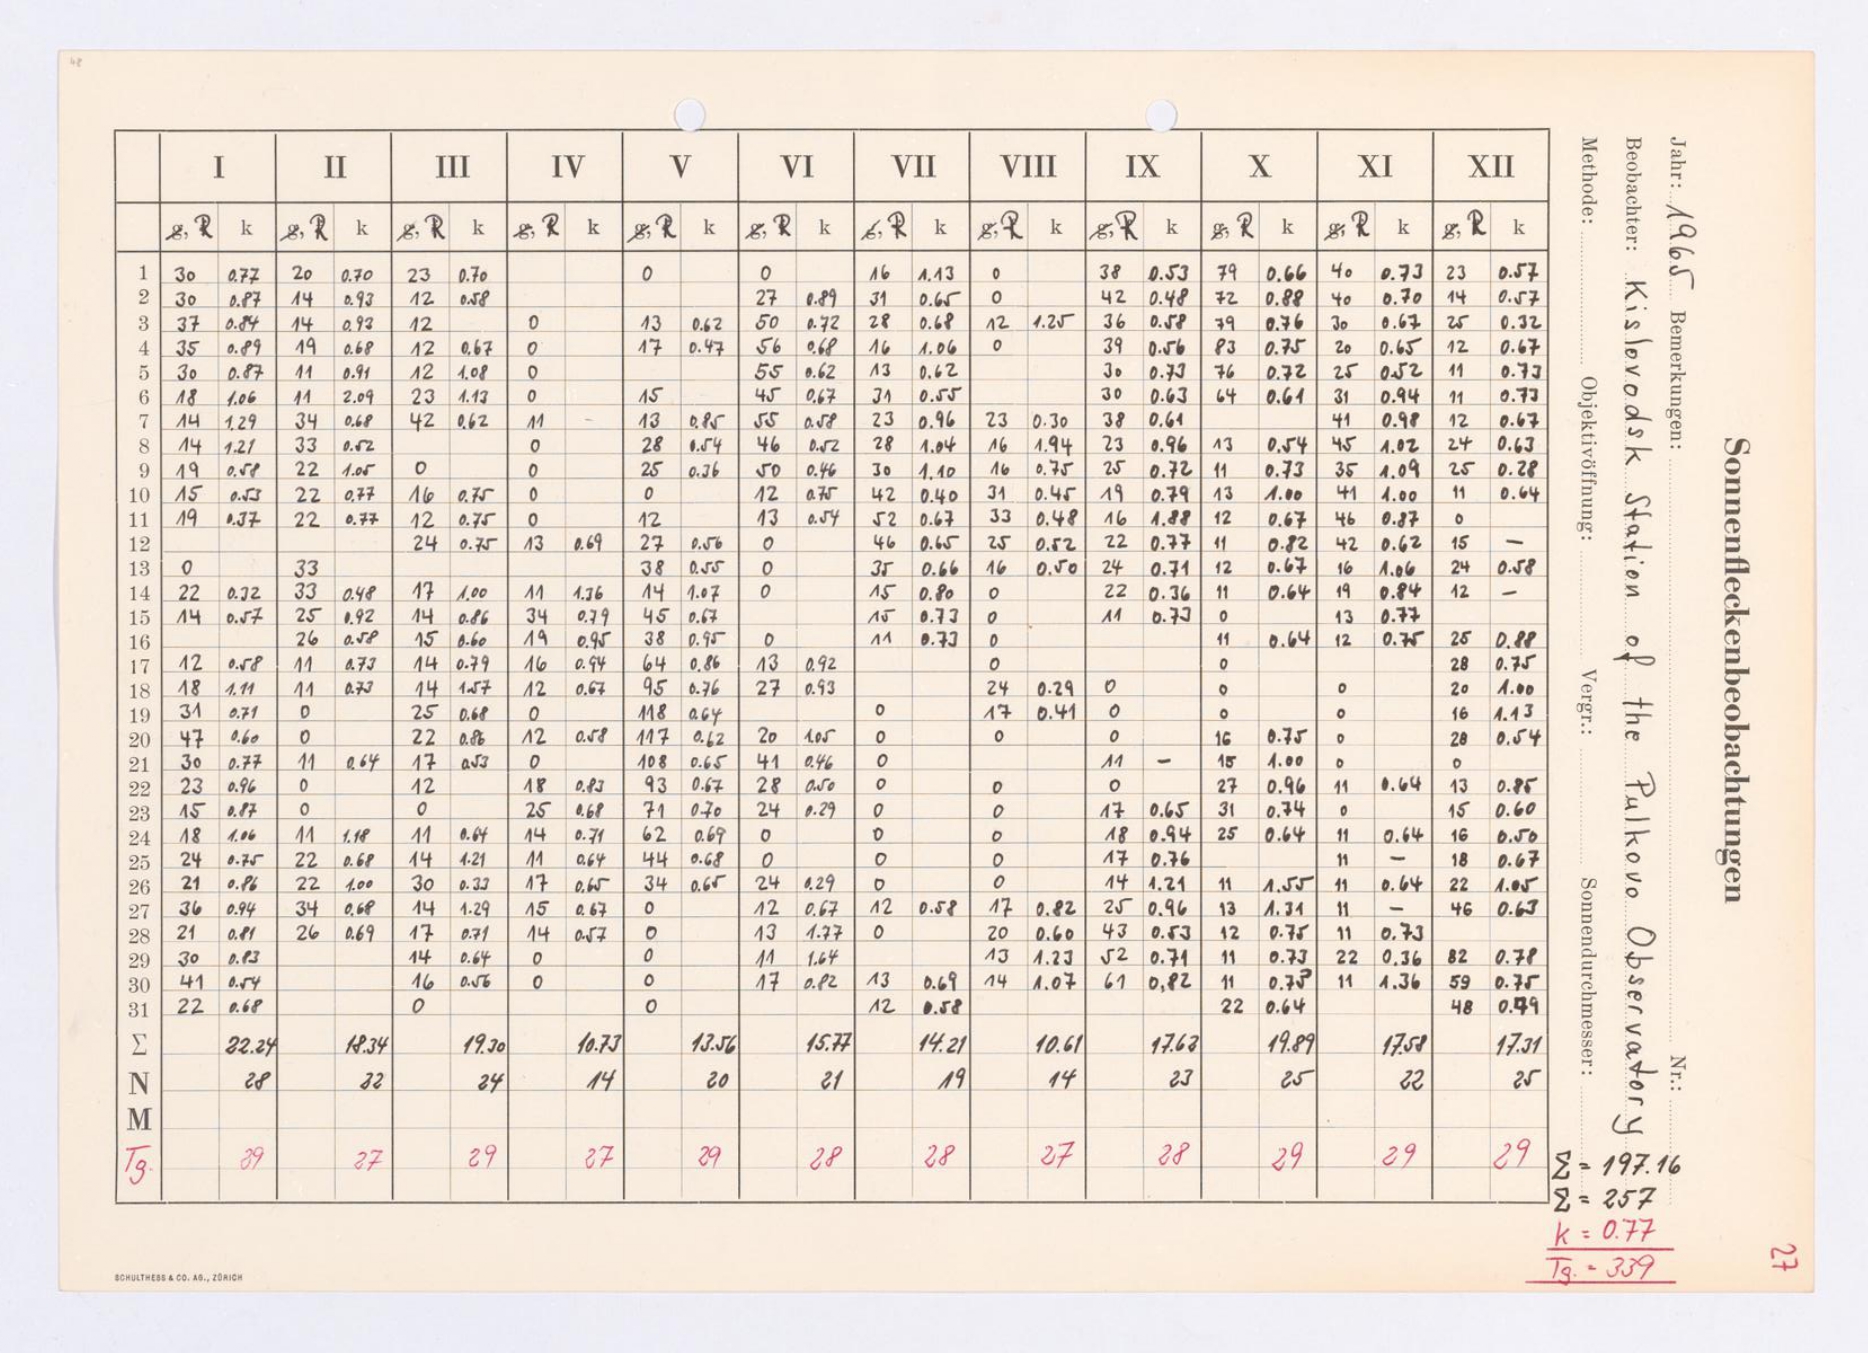 48
Sonnenfleckenbeobachtungen
Jahr: 1965 Bemerkungen: Nr.:
Beobachter: Kislovodsk Station of the Pulkovo Observatory
Methode: Objektivöffnung: Vergr.: Sonnendurchmesser:
I II III IV V VI VII VIII IX X XI XII
g, R k g, R k g, R k g, R k g, R k g, R k g, R k g, R k g, R k g, R k g, R k g, R k
1 30 0.77 20 0.70 23 0.70 0 0 16 1.13 0 38 0.53 79 0.66 40 0.73 23 0.57
2 30 0.87 14 0.93 12 0.58 27 0.89 31 0.65 0 42 0.48 72 0.88 40 0.70 14 0.57
3 37 0.84 14 0.93 12 0 13 0.62 50 0.72 28 0.68 12 1.25 36 0.58 79 0.76 30 0.67 25 0.32
4 35 0.89 19 0.68 12 0.67 0 17 0.47 56 0.68 16 1.06 0 39 0.56 83 0.75 20 0.65 12 0.67
5 30 0.87 11 0.91 12 1.08 0 55 0.62 13 0.62 30 0.73 76 0.72 25 0.52 11 0.73
6 18 1.06 11 2.09 23 1.13 0 15 45 0.67 31 0.55 30 0.63 64 0.61 31 0.94 11 0.73
7 14 1.29 34 0.68 42 0.62 11 - 13 0.85 55 0.58 23 0.96 23 0.30 38 0.61 41 0.98 12 0.67
8 14 1.21 33 0.52 0 28 0.54 46 0.52 28 1.04 16 1.94 23 0.96 13 0.54 45 1.02 24 0.63
9 19 0.58 22 1.05 0 0 25 0.36 50 0.46 30 1.10 16 0.75 25 0.72 11 0.73 35 1.09 25 0.28
10 15 0.53 22 0.77 16 0.75 0 0 12 0.75 42 0.40 31 0.45 19 0.79 13 1.00 41 1.00 11 0.64
11 19 0.37 22 0.77 12 0.75 0 12 13 0.54 52 0.67 33 0.48 16 1.88 12 0.67 46 0.87 0
12 24 0.75 13 0.69 27 0.56 0 46 0.65 25 0.52 22 0.77 11 0.82 42 0.62 15 —
13 0 33 38 0.55 0 35 0.66 16 0.50 24 0.71 12 0.67 16 1.06 24 0.58
14 22 0.32 33 0.48 17 1.00 11 1.36 14 1.07 0 15 0.80 0 22 0.36 11 0.64 19 0.84 12 —
15 14 0.57 25 0.92 14 0.86 34 0.79 45 0.67 15 0.73 0 11 0.73 0 13 0.77
16 26 0.58 15 0.60 19 0.95 38 0.95 0 11 0.73 0 11 0.64 12 0.75 25 0.88
17 12 0.58 11 0.73 14 0.79 16 0.94 64 0.86 13 0.92 0 0 28 0.75
18 18 1.11 11 0.73 14 1.57 12 0.67 95 0.76 27 0.93 24 0.29 0 0 0 20 1.00
19 31 0.71 0 25 0.68 0 118 0.64 0 17 0.41 0 0 0 16 1.13
20 47 0.60 0 22 0.86 12 0.58 117 0.62 20 1.05 0 0 0 16 0.75 0 28 0.54
21 30 0.77 11 0.64 17 0.53 0 108 0.65 41 0.46 0 11 — 15 1.00 0 0
22 23 0.96 0 12 18 0.83 93 0.67 28 0.50 0 0 0 27 0.96 11 0.64 13 0.85
23 15 0.87 0 0 25 0.68 71 0.70 24 0.29 0 0 17 0.65 31 0.74 0 15 0.60
24 18 1.06 11 1.18 11 0.64 14 0.71 62 0.69 0 0 0 18 0.94 25 0.64 11 0.64 16 0.50
25 24 0.75 22 0.68 14 1.21 11 0.64 44 0.68 0 0 0 17 0.76 11 — 18 0.67
26 21 0.86 22 1.00 30 0.33 17 0.65 34 0.65 24 0.29 0 0 14 1.21 11 1.55 11 0.64 22 1.05
27 36 0.94 34 0.68 14 1.29 15 0.67 0 12 0.67 12 0.58 17 0.82 25 0.96 13 1.31 11 — 46 0.63
28 21 0.81 26 0.69 17 0.71 14 0.57 0 13 1.77 0 20 0.60 43 0.53 12 0.75 11 0.73
29 30 0.83 14 0.64 0 0 11 1.64 13 1.23 52 0.71 11 0.73 22 0.36 82 0.78
30 41 0.54 16 0.56 0 0 17 0.82 13 0.69 14 1.07 61 0,82 11 0.73 11 1.36 59 0.75
31 22 0.68 0 0 12 0.58 22 0.64 48 0.79
Σ 22.24 18.34 19.30 10.73 13.56 15.77 14.21 10.61 17.63 19.89 17.58 17.31
N 28 22 24 14 20 21 19 14 23 25 22 25
M
Tg. 29 27 29 27 29 28 28 27 28 29 29 29
Σ = 197.16
Σ = 257
k = 0.77
Tg. = 339
27
SCHULTHESS & CO. AG., ZÜRICH